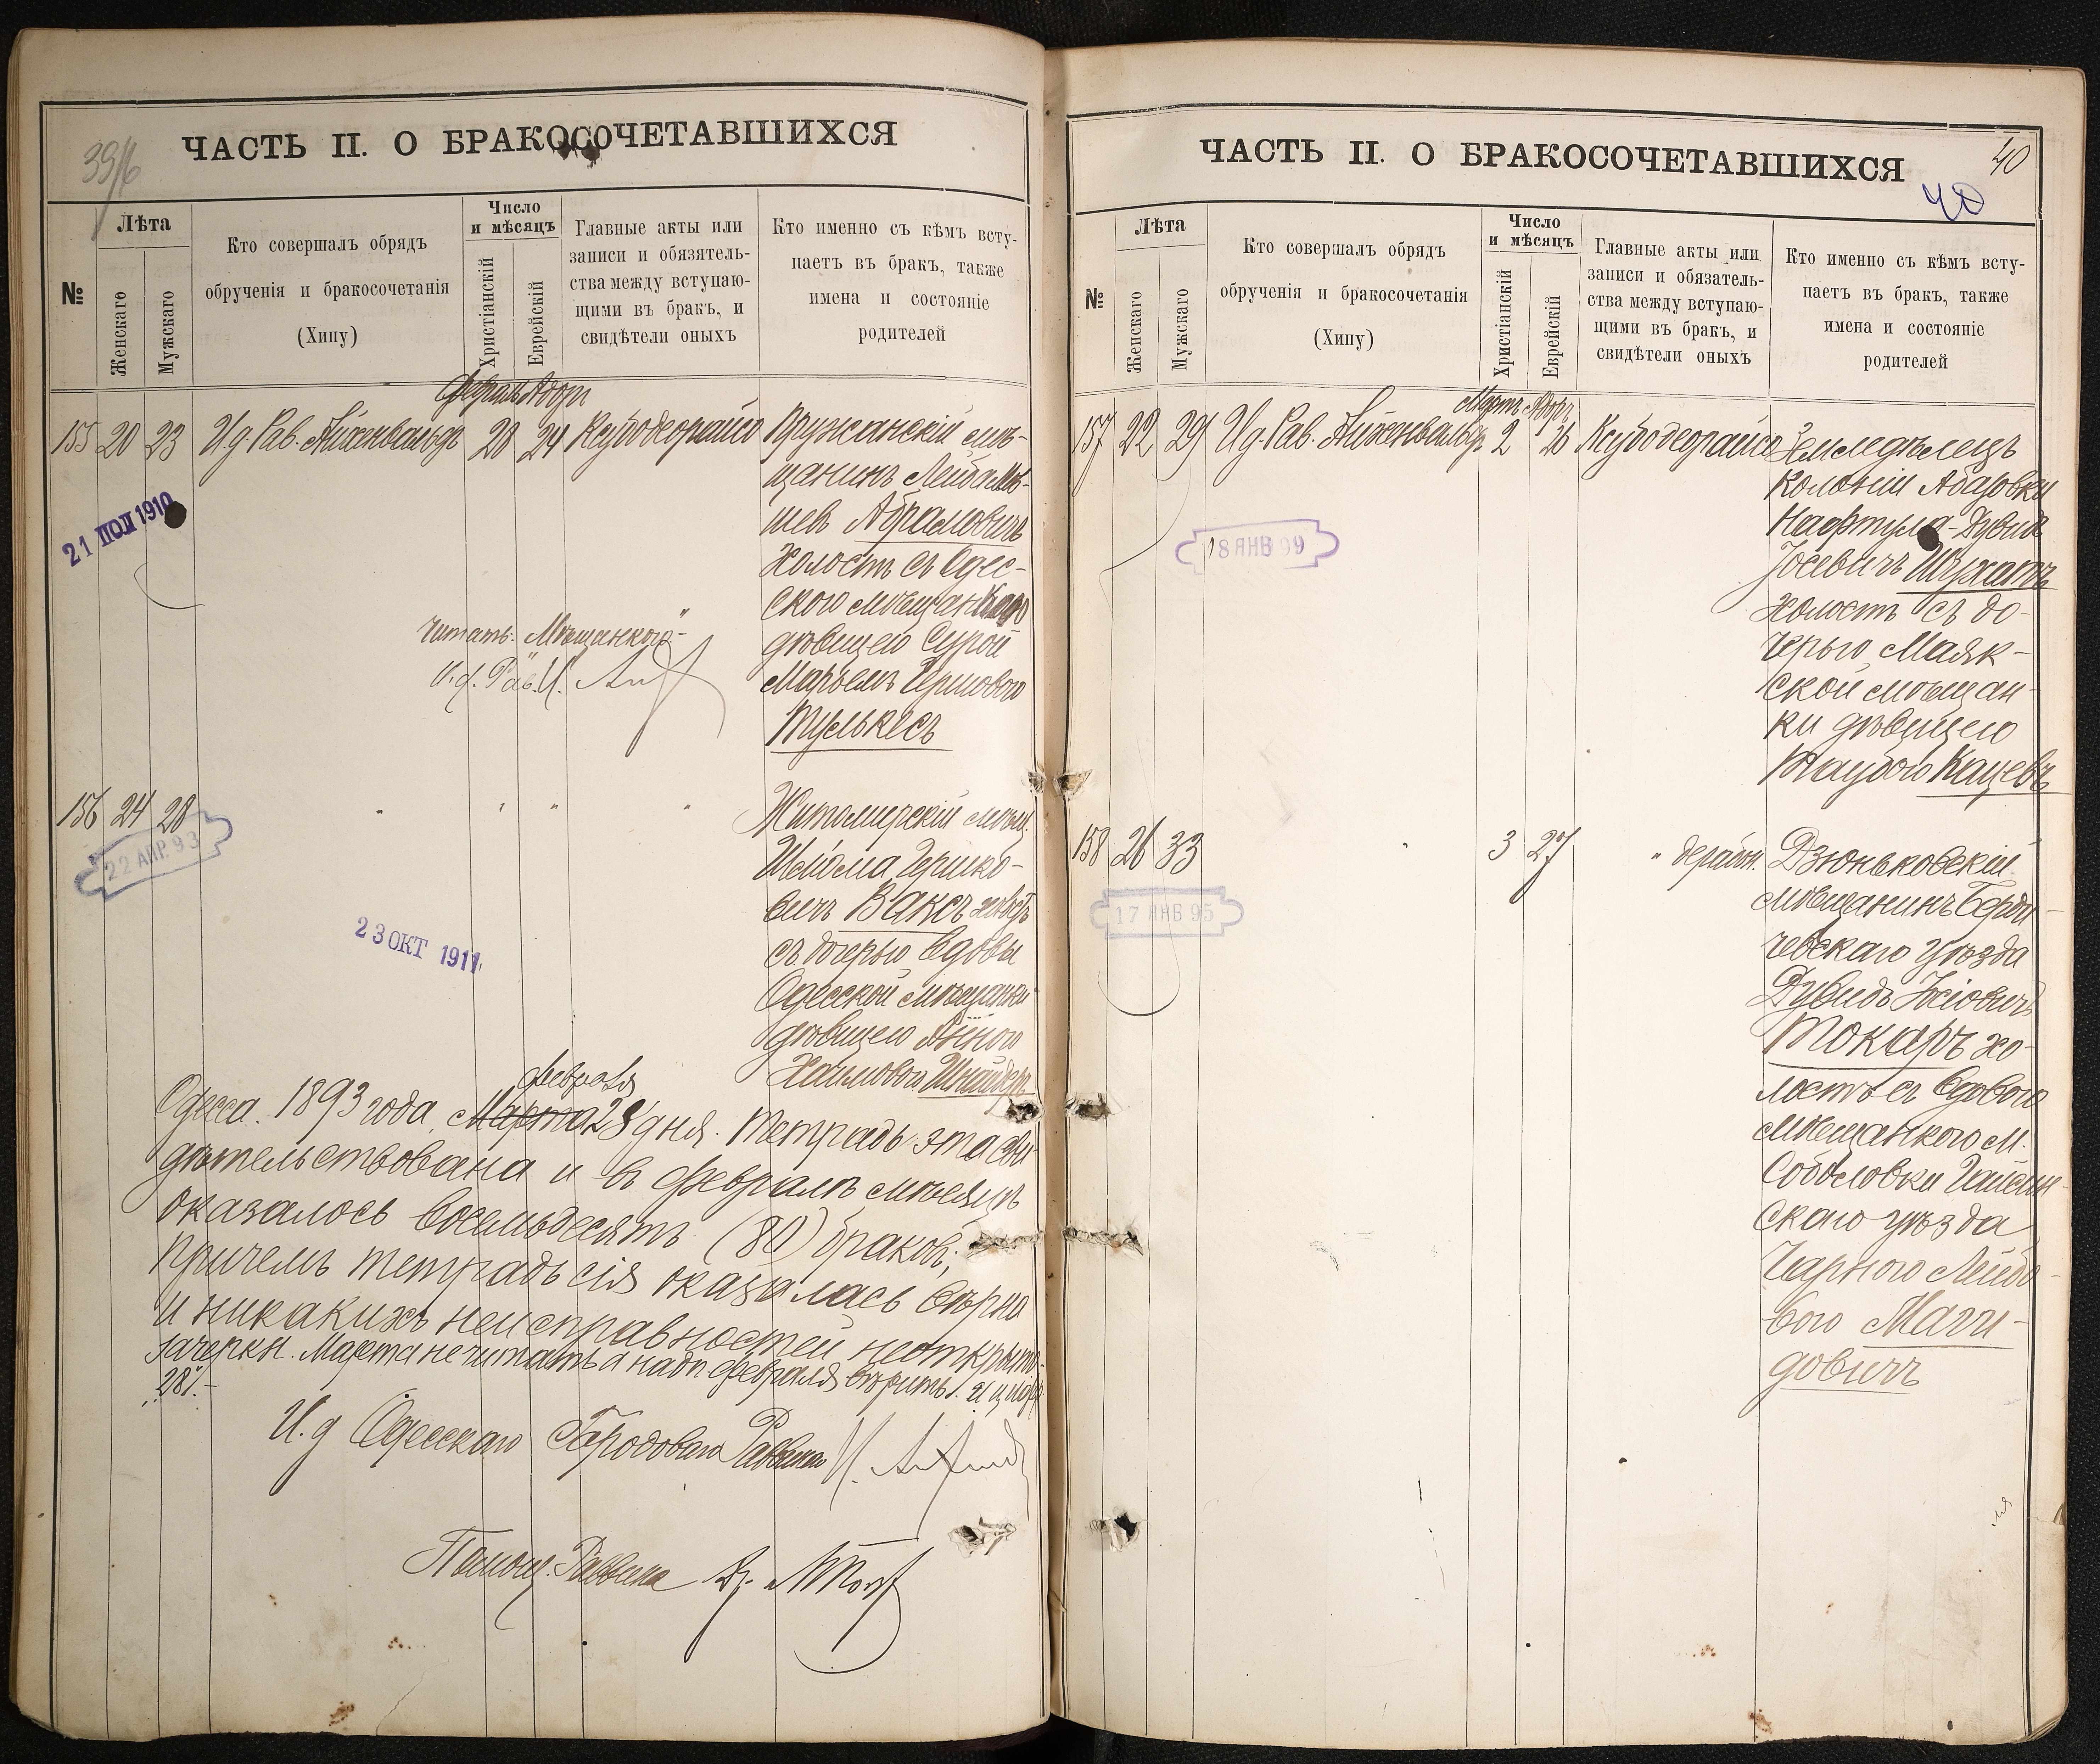 39/16
ЧАСТЬ II. О БРАКОСОЧЕТАВШИХСЯ
№
Лѣта
Женскаго
Мужскаго
Кто совершалъ обрядъ
обрученія и бракосочетанія
(Хипу)
Число
и мѣсяцъ
Христіанскій
Еврейскій
Главные акты или
записи и обязатель-
ства между вступаю-
щими въ бракъ, и
свидѣтели оныхъ
Кто именно съ кѣмъ всту-
паетъ въ бракъ, также
имена и состояніе
родителей
Февраль Адоръ
155 20 23 И д. Рав. Айхенвальдъ 28 24 Ксубо деорайсо
Пружанскій мѣ-
щанинъ Лейба Мов-
шев Абрамовичъ
Холостъ съ Одес-
ского мѣщанкою
дѣвицею Сурой
Марьемъ Гершовою
Тулькесъ
21 ПОЛ 1910
Читать: „Мѣщанкою"-
И. д. Рав. И.
156 24 28 " " " "
Житомирскій мѣщ.
Шлома Гершко-
вичъ Ваксъ холостъ
съ дочерью вдовы
Одесской мѣщанки
дѣвицею Анною
Хаимовой Шнайдеръ
22 АПР. 93
23 ОКТ 1911
февраля
Одесса. 1893 года, Марта 28 дня. Тетрадь эта сви-
дѣтельствована и въ Февралѣ мѣсяцѣ
оказалось восемьдесятъ (80) браковъ;
причемъ тетрадь сія оказалась вѣрна
и никакихъ неисправностей не открыто.
зачеркн. Марта не читать а надп февраля вѣрить. и цифр
„28".-
И. д Одесскаго Городоваго Раввина И.
Помощ. Раввина
40
ЧАСТЬ II. О БРАКОСОЧЕТАВШИХСЯ
40
№
Лѣта
Женскаго
Мужскаго
Кто совершалъ обрядъ
обрученія и бракосочетанія
(Хипу)
Число
и мѣсяцъ
Христіанскій
Еврейскій
Главные акты или
записи и обязатель-
ства между вступаю-
щими въ бракъ, и
свидѣтели оныхъ
Кто именно съ кѣмъ всту-
паетъ въ бракъ, также
имена и состояніе
родителей
Мартъ Адоръ
157 22 29 И д. Рав. Айхенвальдъ 2 26 Ксубо деорайсо
Земледѣлецъ
Колоніи Абазовки
Нафтула-Дувидъ
Іосевичъ Шухатъ
холостъ съ до-
черью Маяк-
ской мѣщан-
ки дѣвицею
Таубою Кацевъ
18 ЯНВ 99
158 26 33 " 3 27 " дерабон.
Дзюньковскій
мѣщанинъ Берди-
чевскаго уѣзда
Дувидъ Іосіовичъ
Токаръ хо-
лостъ съ вдовою
мѣщанкою м.
Соболовки Гайсин-
скаго уѣзда
Чарною Лейбо-
вою Маги-
довичъ
17 ЯНВ 95